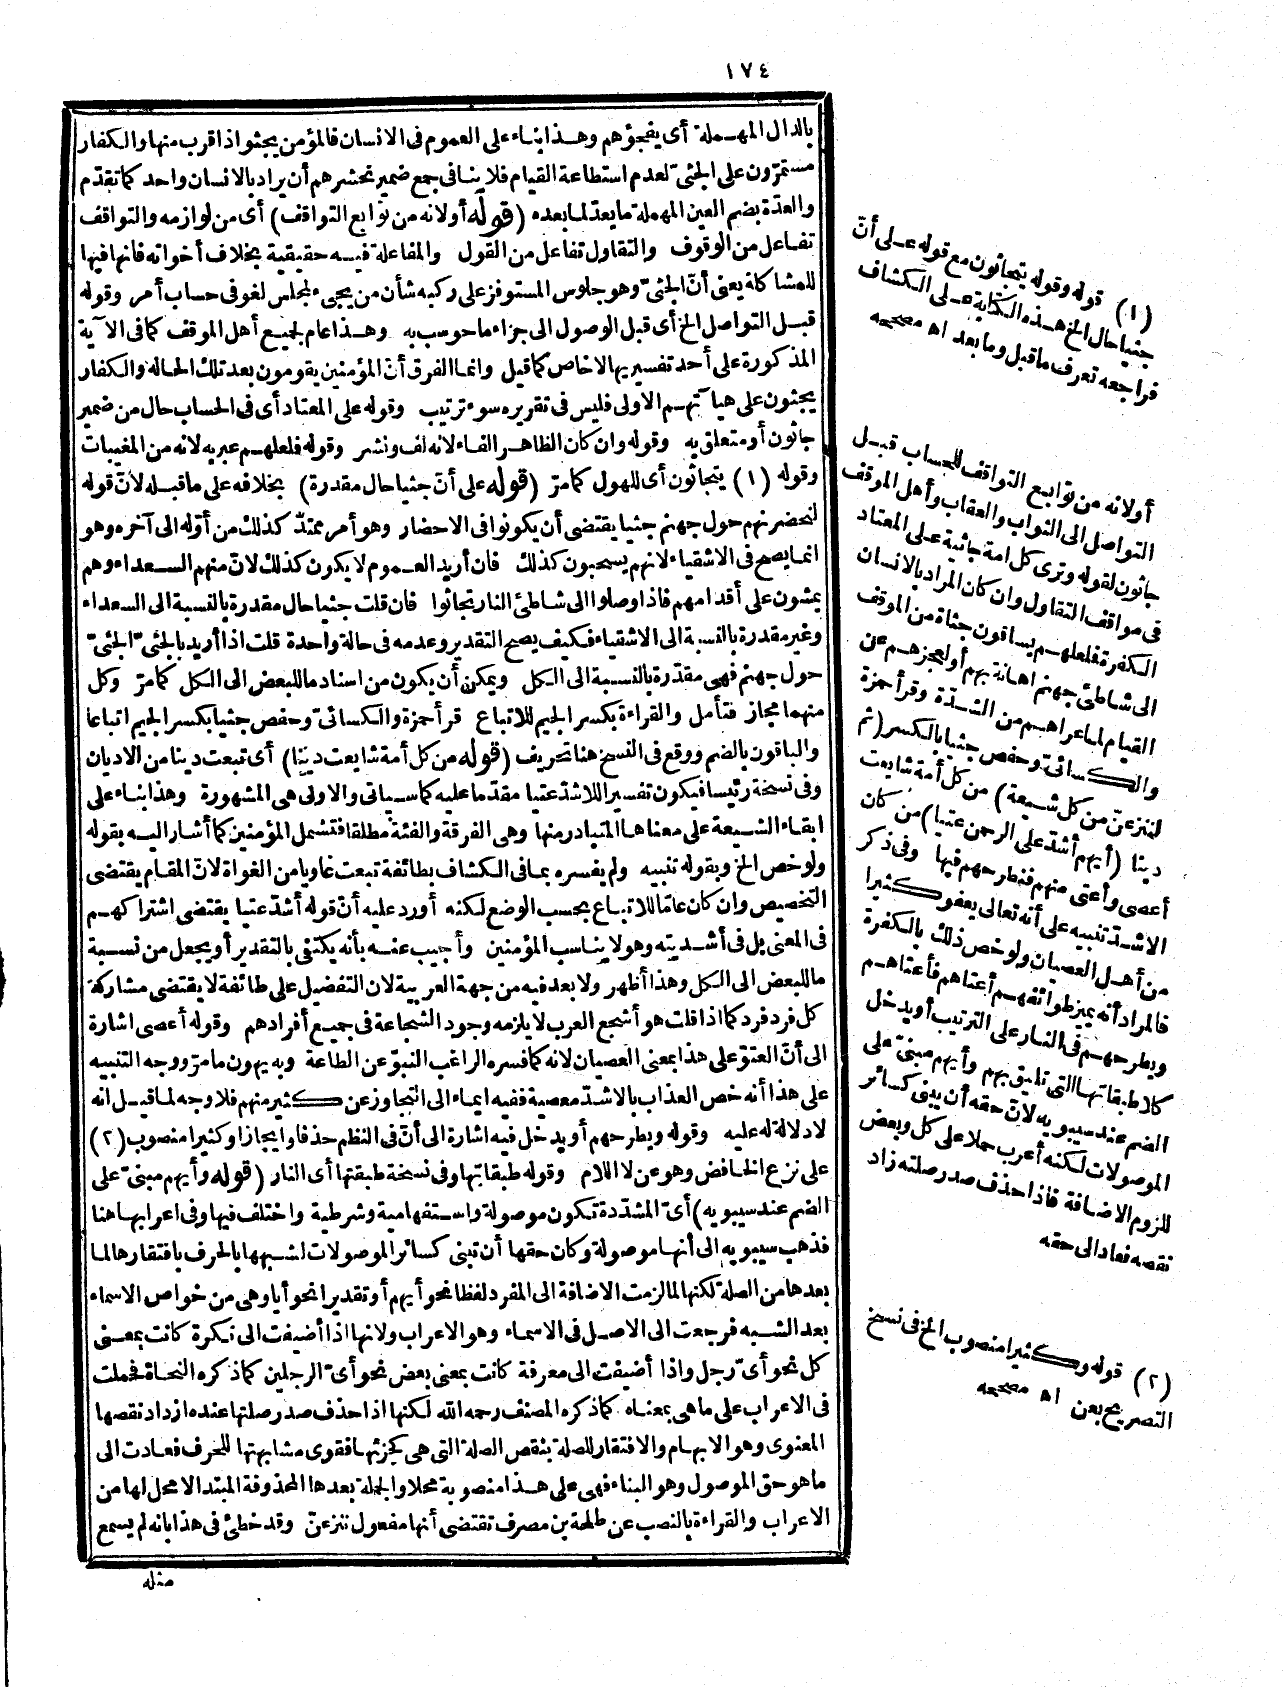 ١٧٤
بالدال المهملة أى يفجؤهم وهذا بناء على العموم فى الانسان فالمؤمن يجثو اذا قرب منها والكفار
مستمرّون على الجثىّ لعدم استطاعة القيام فلا ينافى جمع ضمير نحشرهم أن يراد بالانسان واحد كما تقدّم
والعدّة بضم العين المهملة ما يعدّ لما بعده (قوله أولانه من توابع التواقف) أى من لوازمه والتواقف
تفاعل من الوقوف والتقاول تفاعل من القول والمفاعلة فيه حقيقية بخلاف أخواته فانها فيها
للمشاكلة يعنى أنّ الجثىّ وهو جلوس المستوفز على ركبه شأن من يجىء لمجلس لغو فى حساب أمر وقوله
قبل التواصل الخ أى قبل الوصول الى جزاء ما حوسب به وهذا عام لجميع أهل الموقف كما فى الآية
المذكورة على أحد تفسيريها الاخاص كما قيل وانما الفرق أنّ المؤمنين يقومون بعد تلك الحالة والكفار
يجثون على هيآتهم الاولى فليس فى تقريره سوء ترتيب وقوله على المعتاد أى فى الحساب حال من ضمير
جاثون أو متعلق به وقوله وان كان الظاهر الفاء لانه لف ونشر وقوله فلعلهم عبر به لانه من المغيبات
وقوله (١) يتجاثون أى للهول كما مرّ (قوله على أنّ جثيا حال مقدرة) بخلافه على ما قبله لأنّ قوله
لنحضرنهم حول جهنم جثيا يقتضى أن يكونوا فى الاحضار وهو أمر ممتدّ كذلك من أوّله الى آخره وهو
انما يصح فى الاشقياء لانهم يسحبون كذلك فان أريد العموم لا يكون كذلك لانّ منهم السعداء وهم
يمشون على أقدامهم فاذا وصلوا الى شاطئ النار تجاثوا فان قلت جثيا حال مقدرة بالنسبة الى السعداء
وغير مقدرة بالنسبة الى الاشقياء فكيف يصح التقدير وعدمه فى حالة واحدة قلت اذا أريد بالجثىّ الجثىّ
حول جهنم فهى مقدّرة بالنسبة الى الكل ويمكن أن يكون من اسناد ما للبعض الى الكل كما مرّ وكل
منهما مجاز فتأمل والقراءة بكسر الجيم للاتباع قرأ حمزة والكسائىّ وحفص جثيا بكسر الجيم اتباعا
والباقون بالضم ووقع فى النسخ هنا تحريف (قوله من كل أمة شايعت دينا) أى تبعت دينا من الاديان
وفى نسخة رئيسا فيكون تفسير اللاشد عتيا مقدّما عليه كما سيأتى والاولى هى المشهورة وهذا بناء على
ابقاء الشيعة على معناها المتبادر منها وهى الفرقة والفئة مطلقا فتشمل المؤمنين كما أشار اليه بقوله
ولو خص الخ وبقوله تنبيه ولم يفسره بما فى الكشاف بطائفة تبعت غاويا من الغواة لانّ المقام يقتضى
التخصيص وان كان عاما للاتباع بحسب الوضع لكنه أورد عليه أنّ قوله أشدّ عتيا يقتضى اشتراكهم
فى المعنى بل فى أشديته وهو لا يناسب المؤمنين وأجيب عنه بأنه يكتفى بالتقدير أو يجعل من نسبة
ما للبعض الى الكل وهذا أظهر ولا بعد فيه من جهة العربية لان التفضيل على طائفة لا يقتضى مشاركة
كل فرد فرد كما اذا قلت هو أشجع العرب لا يلزمه وجود الشجاعة فى جميع أفرادهم وقوله أعصى اشارة
الى أنّ العتوّ على هذا بمعنى العصيان لانه كما فسره الراغب النبوّ عن الطاعة وبه يهون ما مرّ ووجه التنبيه
على هذا أنه خص العذاب بالاشدّ معصية ففيه ايماء الى التجاوز عن كثير منهم فلا وجه لما قيل انه
لا دلالة له عليه وقوله ويطرحهم أو يدخل فيه اشارة الى أنّ فى النظم حذفا وايجازا وكثيرا منصوب (٢)
على نزع الخافض وهو عن لا اللام وقوله طبقاتها وفى نسخة طبقتها أى النار (قوله وأيهم مبنىّ على
الضم عند سيبويه) أىّ المشدّدة تكون موصولة واستفهامية وشرطية واختلف فيها وفى اعرابها هنا
فذهب سيبويه الى أنها موصولة وكان حقها أن تبنى كسائر الموصولات لشبهها بالحرف بافتقارها لما
بعدها من الصلة لكنها لما لزمت الاضافة الى المفرد لفظا نحو أيهم أو تقديرا نحو أيا وهى من خواص الاسماء
بعد الشبه فرجعت الى الاصل فى الاسماء وهو الاعراب ولانها اذا أضيفت الى نكرة كانت بمعنى
كل نحو أىّ رجل واذا أضيفت الى معرفة كانت بمعنى بعض نحو أىّ الرجلين كما ذكره النحاة فحملت
فى الاعراب على ما هى بمعناه كما ذكره المصنف رحمه الله لكنها اذا حذف صدر صلتها عنده ازداد نقصها
المعنوى وهو الابهام والافتقار للصلة بنقص الصلة التى هى كجزئها فقوى مشابهتها للحرف فعادت الى
ما هو حق الموصول وهو البناء فهى على هذا منصوبة محلا والجملة بعدها المحذوفة المبتدا لا محل لها من
الاعراب والقراءة بالنصب عن طلحة بن مصرف تقتضى أنها مفعول ننزعنّ وقد خطئ فى هذا بانه لم يسمع
مثله
(١) قوله وقوله يتجاثون مع قوله على أنّ
جثيا حال الخ هذه الكتابة على الكشاف
فراجعه تعرف ما قبل وما بعد اه مصححه
أولانه من توابع التواقف للحساب قبل
التواصل الى الثواب والعقاب وأهل الموقف
جاثون لقوله وترى كل أمة جاثية على المعتاد
فى مواقف التقاول وان كان المراد بالانسان
الكفرة فلعلهم يساقون جثاة من الموقف
الى شاطئ جهنم اهانة بهم أو لعجزهم عن
القيام لما عراهم من الشدّة وقرأ حمزة
والكسائىّ وحفص جثيا بالكسر (ثم
لننزعنّ من كل شيعة) من كل أمة شايعت
دينا (أيهم أشدّ على الرحمن عتيا) من كان
أعصى وأعتى منهم فنطرحهم فيها وفى ذكر
الاشدّ تنبيه على أنه تعالى يعفو كثيرا
من أهل العصيان ولو خص ذلك بالكفرة
فالمراد أنه يميز طوائفهم أعتاهم فأعتاهم
ويطرحهم فى النار على الترتيب أو يدخل
كلا طبقاتها التى تليق بهم وأيهم مبنىّ على
الضم عند سيبويه لانّ حقه أن يبنى كسائر
الموصولات لكنه أعرب حملا على كل وبعض
للزوم الاضافة فاذا حذف صدر صلته زاد
نقصه فعاد الى حقه
(٢) قوله وكثيرا منصوب الخ فى نسخ
التصريح بعن اه مصححه